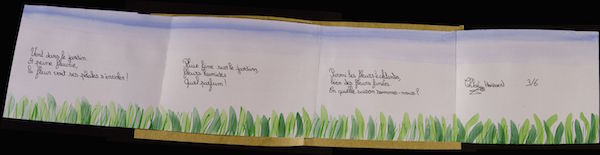 Vent dans le jardin
À peine fleurie,
la fleur voit ses pétales s'envoler !
Pluie fine sur le jardin,
fleurs humides
Quel parfum !
Parmi les fleurs écloses,
bien des fleurs fanées
En quelle saison sommes-nous ?
3/6